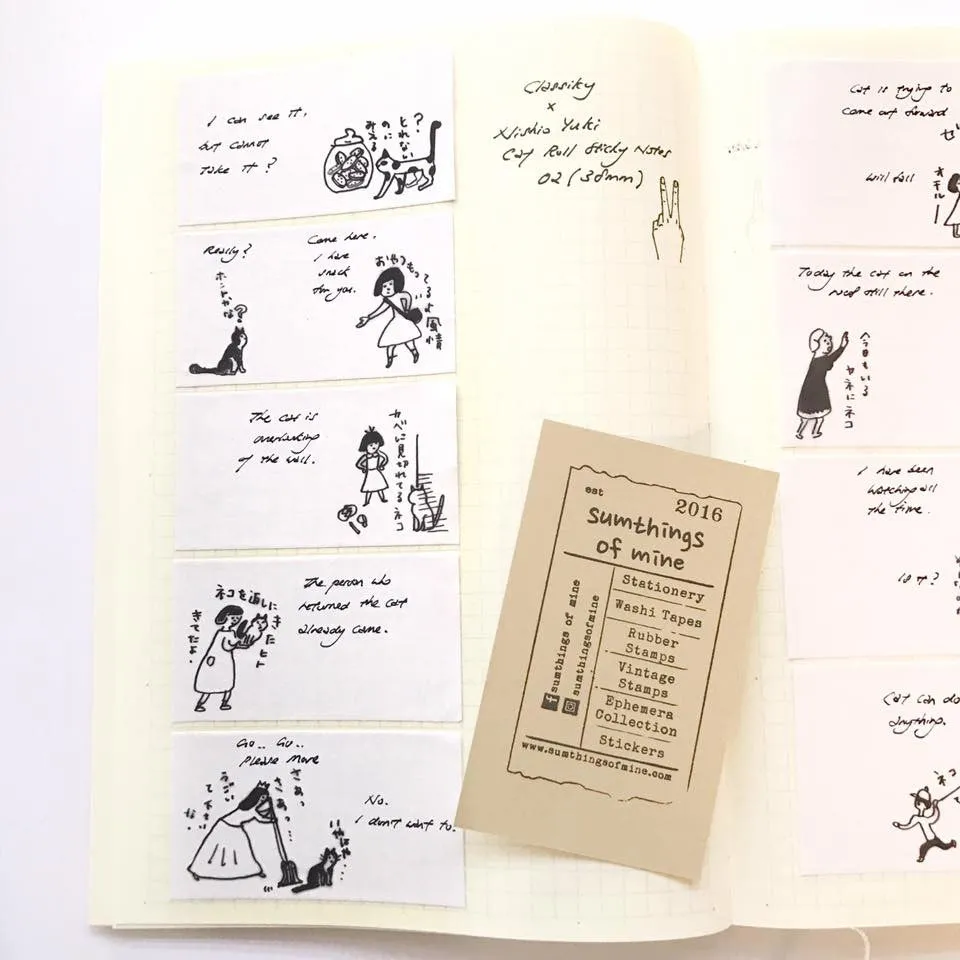 I can see it,
but cannot
take it?
みえる
のに
とれない
?
Really?
ホントかな?
Come here.
I have
snack
for you.
おやつもってるよ風情
The cat is
overlooking
of the wall.
カベに見切れてるネコ
The person who
returned the cat
already came.
ネコを返しに
きたヒト
きてたよ.
Go.. Go..
Please move
さあっ
さあっ…
うごい
て下さい
な.
No.
I don't want to.
いやはや…
Classiky
x
Nishio Yuki
Cat Roll Sticky Notes
02 (38mm)
est 2016
sumthings
of mine
Stationery
Washi Tapes
Rubber
Stamps
Vintage
Stamps
Ephemera
Collection
Stickers
sumthings of mine
sumthingsofmine
www.sumthingsofmine.com
Cat is trying to
come out forward
Will fall
オチルー
Today the cat on the
roof still there.
今日もいる
ヤネにネコ
I have been
watching all
the time.
Is it?
Cat can do
anything.
ネコ